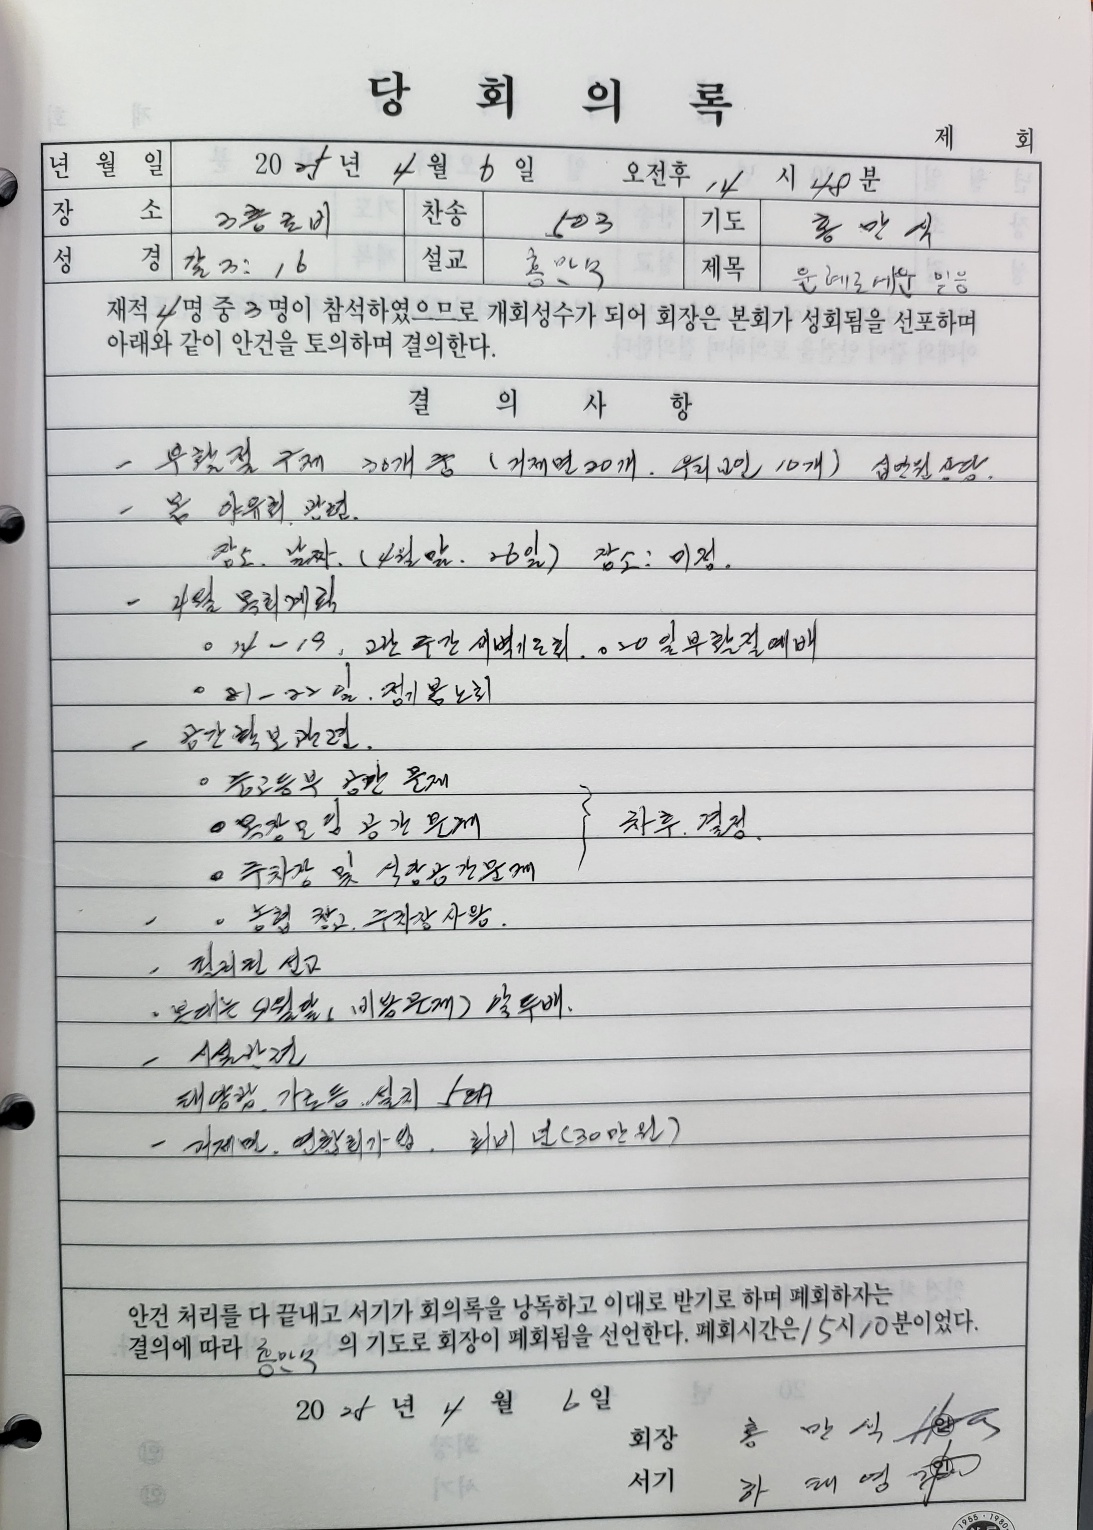 당 회 의 록
제 회
년 월 일 2025년 4월 6일 오전후 14 시 48분
장 소 3층로비 찬송 503 기도 홍 만 식
성 경 갈 3:16 설교 홍만식 제목 믿음
재적 4명 중 3명이 참석하였으므로 개회성수가 되어 회장은 본회가 성회됨을 선포하며
아래와 같이 안건을 토의하며 결의한다.
결 의 사 항
- 부활절 구제 30개 중 (거제면 20개. 우리교인 10개) 십만원 상당.
- 봄 야유회 관련.
장소. 날짜. (4월 말. 26일) 장소: 미정.
- 4월 목회계획
∘ 14-19. 고난 주간 새벽기도회. ∘ 20일 부활절예배
∘ 21-22일. 정기봄노회
- 공간확보관련.
∘ 중고등부 공간 문제
∘ 목장모임 공간 문제 } 차후. 결정.
∘ 주차장 및 식당공간문제
- ∘ 농협 창고. 주차장사용.
- 필리핀 선교
- 시설관련
태양광. 가로등. 설치 5대
- 거제면. 연합회가입. 회비 년(30만원)
안건 처리를 다 끝내고 서기가 회의록을 낭독하고 이대로 받기로 하며 폐회하자는
결의에 따라 홍만식 의 기도로 회장이 폐회됨을 선언한다. 폐회시간은 15시 10분이었다.
2025년 4월 6일
회장 홍 만 식 인
서기 하 태 영 인
1955 · 1980